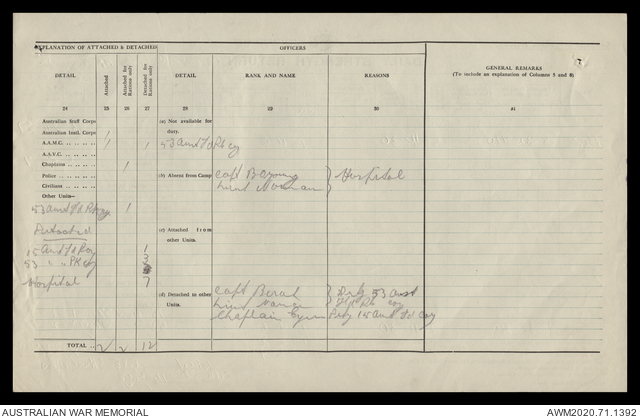 EXPLANATION OF ATTACHED & DETACHED
OFFICERS
GENERAL REMARKS
(To include an explanation of Columns 5 and 6)
DETAIL
Attached
Attached for Rations only
Detached for Rations only
DETAIL
RANK AND NAME
REASONS
24 25 26 27 28 29 30 31
Australian Staff Corps
(a) Not available for duty.
Australian Instl. Corps 1
A.A.M.C. 1 1
53 Aust Fd Pk Coy
A.A.V.C.
Chaplains 1
(b) Absent from Camp
Capt
Hospital
Police
Lieut
Civilians
Other Units—
53 Aust Fd Pk Coy 1
Detached
(c) Attached from other Units.
15 Aust Fd Coy 1
53 " " PK Coy 3
Hospital 7
(d) Detached to other Units.
Capt
Duty 53 Aust
Lieut
Fd Pk Coy
Chaplain
Duty 15 Aust Fd Coy
TOTAL 2 2 12
AUSTRALIAN WAR MEMORIAL
AWM2020.71.1392